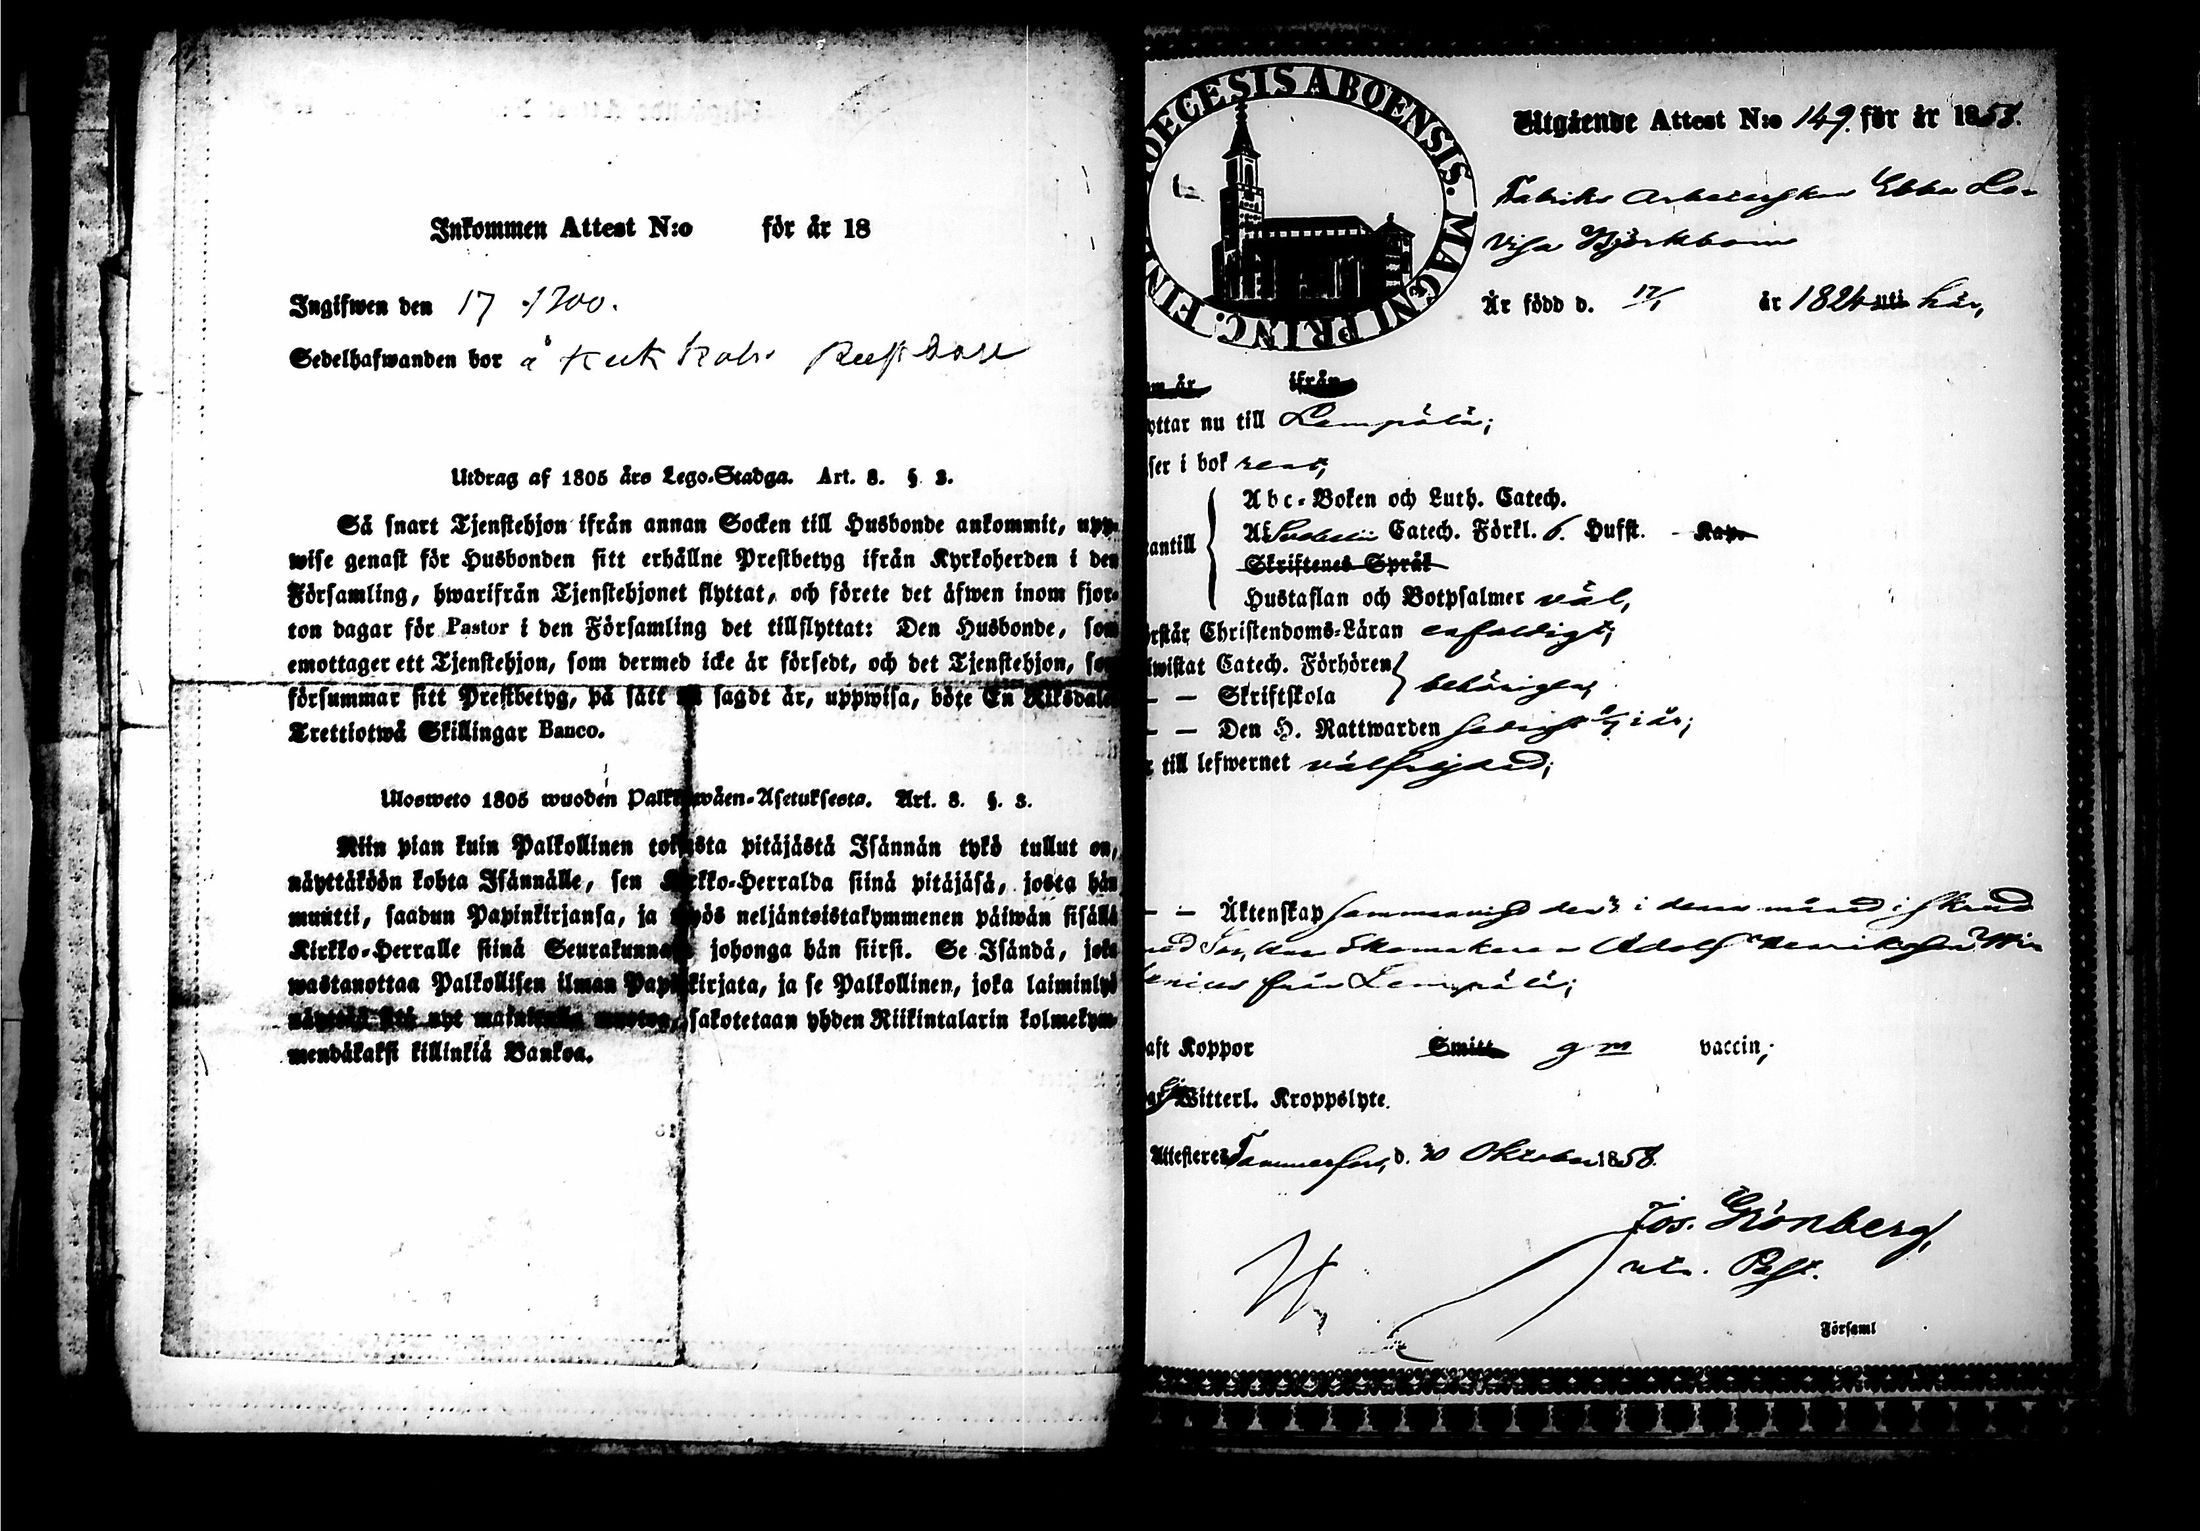 Inkommen Attest N:o för år 18
Ingifwen den 17
Sedelhafwanden bor å
Utdrag af 1805 års Lego-Stadga. Art. 8. §. 3.
Så snart Tjenstehjon ifrån annan Socken till Husbonde ankommit, upp-
wise genast för Husbonden sitt erhållne Prestbetyg ifrån Kyrkoherden i den
Församling, hwarifrån Tjenstehjonet flyttat, och förete det äfwen inom fjor-
ton dagar för Pastor i den Församling det tillflyttat: Den Husbonde, som
emottager ett Tjenstehjon, som dermed icke är försedt, och det Tjenstehjon, som
försummar sitt Prestbetyg, på sätt sagdt är, uppwisa, böte En Riksdaler
Trettiotwå Skillingar Banco.
Ulosweto 1805 wuoden Palkkawäen-Asetuksesta. Art. 8. §. 3.
Niin pian kuin Palkollinen toisesta pitäjästä Isännän tykö tullut on,
näyttäköön kohta Isännälle, sen Kirkko-Herralda siinä pitäjäsä, josta hän
muutti, saadun Papinkirjansa, ja myös neljäntoistakymmenen päiwän sisällä
Kirkko-Herralle siinä Seurakunnasa johonga hän siirsi. Se Isändä, joka
wastanottaa Palkollisen ilman Papinkirjata, ja se Palkollinen, joka laiminlyö
näyttää sitä nyt sakotetaan yhden Riikintalarin kolmekym-
mendäkaksi killinkiä Bankoa.
DIOECESIS ABOENSIS. MAGNI PRINC. FINL
Utgående Attest N:o 149. för år 1858.
Fabriks Arbeterskan Ebba Lo-
visa Björkbom
Är född d. 17/1 år 1824 uti här,
om år ifrån
yttar nu till Lempälä;
ser i bok rent,
Abc-Boken och Luth. Catech.
antill Af Svebelii Catech. Förkl. 6. Hufst. - Kap.
Skriftenes Språk
Hustaflan och Botpsalmer väl,
rstår Christendoms-Läran enfaldigt;
iwistat Catech. Förhören
— — Skriftskola behörigen,
— — Den H. Nattwarden sednast i år;
r till lefwernet välfrejdad;
— — Äktenskap sammanvigd den i denna månad
med Adolf Henriksson
från Lempälä;
aft Koppor Smitt g m vaccin;
Witterl. Kroppslyte.
Attesteres Tammerfors, d. 30 Oktober 1858.
Jos. Grönberg,
v. Past.
Församl